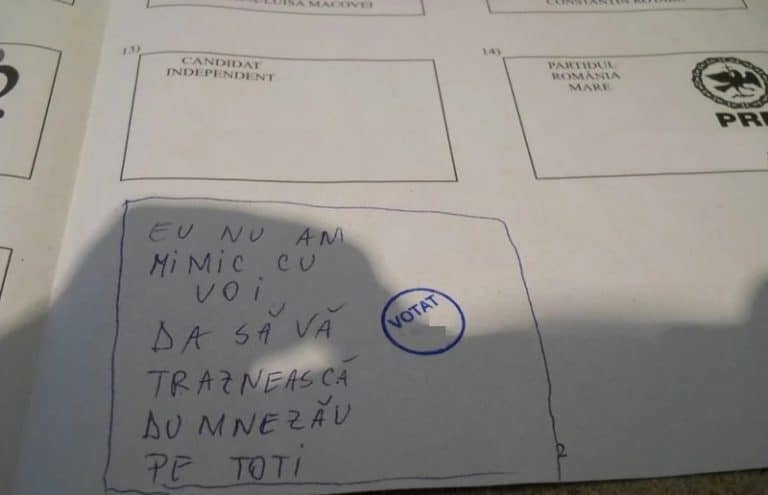 MACOVEI
CONSTANTIN
13)
CANDIDAT
INDEPENDENT
14)
PARTIDUL
ROMÂNIA
MARE
EU NU AM
MiMiC CU
VOi
DA SĂ VĂ
TRAZNEASCĂ
DUMNEZĂU
PE TOTi
VOTAT